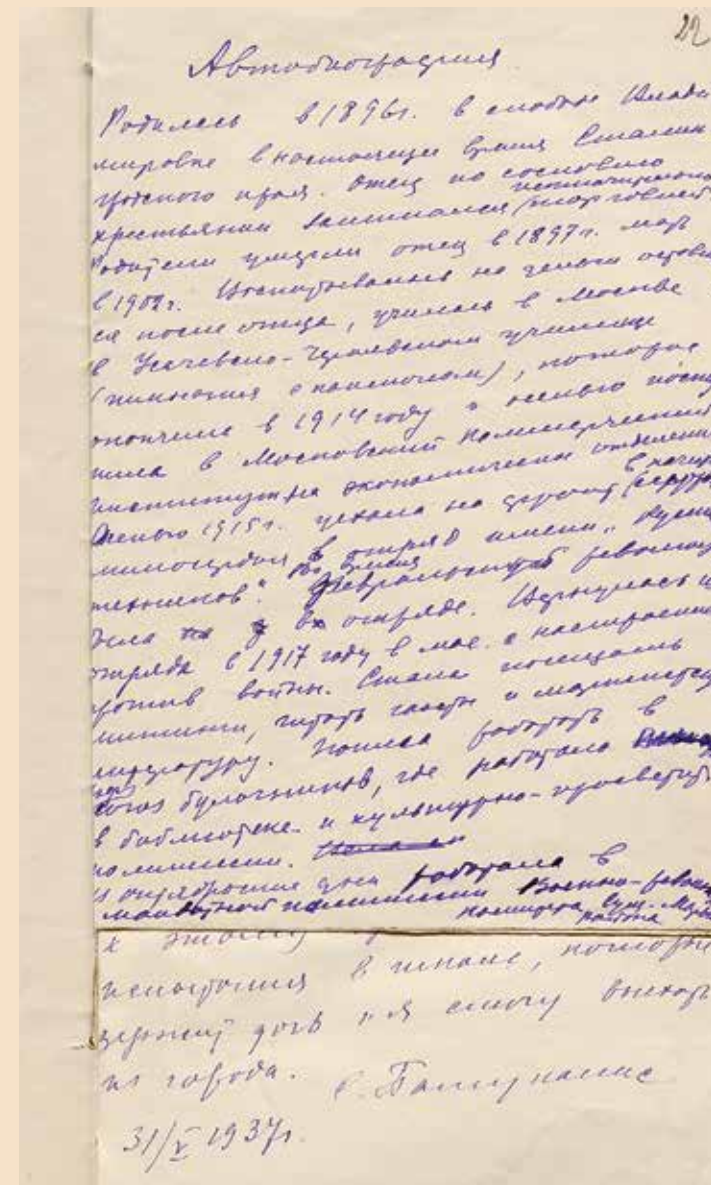 22
Автобиография
Родилась в 1896г. в слободе Влади
мировке в настоящее время Сталин
градского края. Отец по сословию
крестьянин занимался торговлей
Родители умерли отец в 1897г. мать
в 1902г. Воспитывалась на деньги оставш
ся после отца, училась в Москве
в Усачевско-Чернявском училище
(гимназия с пансионом), которое
окончила в 1914 году и осенью посту
пила в Московский Коммерческий
институт на экономическое отделение
Осенью 1915г. уехала на фронт сестрой
милосердия в отряд имени "
Во время февральской революц
была в отряде. Вернулась из
отряда в 1917 году в мае с настроением
против войны. Стала посещать
митинги, читать газеты и марксистск
литературу. Пошла работать в
союз булочников, где работала
в библиотеке и культурно-просветит
комиссии.
В октябрьские дни работала в
комиссии Военно-револю
комитета Сущ.-Мар
района
к этому
испытания в школе, которые
держит дочь и я смогу выехать
из города.
31/V 1937г.